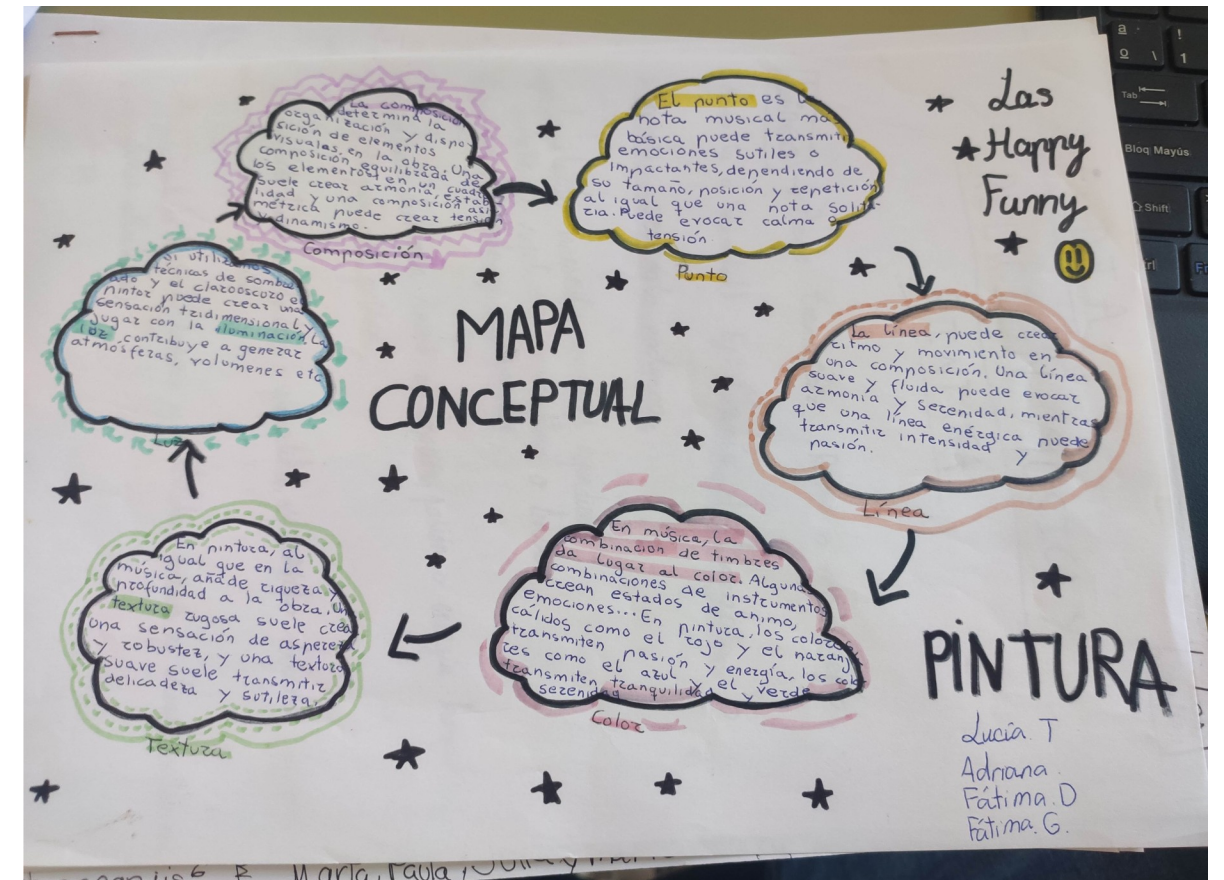 La composición
determina la
organización y dispo-
sición de elementos
visuales, en la obra. Una
composición equilibrada de
los elementos en un cuadro
suele crear armonía, estabi-
lidad y una composición asi-
métrica puede crear tensión
y dinamismo.
Composición
El punto es la
nota musical más
básica puede transmitir
emociones sutiles o
impactantes, dependiendo de
su tamaño, posición y repetición
al igual que una nota solita-
ria. Puede evocar calma o
tensión
Punto
Las
Happy
Funny
Si utilizamos
técnicas de sombre-
ado y el clarooscuro el
pintor puede crear una
sensación tridimensional y
jugar con la iluminación. La
luz contribuye a generar
atmósferas, volumenes etc
Luz
MAPA
CONCEPTUAL
La línea, puede crear
ritmo y movimiento en
una composición. Una línea
suave y fluida puede evocar
armonía y serenidad, mientras
que una línea enérgica puede
transmitir intensidad y
pasión.
Línea
En pintura, al
igual que en la
música, añade riqueza y
profundidad a la obra. Una
textura rugosa suele crear
una sensación de aspereza
y robustez, y una textura
suave suele transmitir
delicadeza y sutileza.
Textura
En música, la
combinación de timbres
da lugar al color. Algunas
combinaciones de instrumentos
crean estados de animo,
emociones... En pintura, los colores
cálidos como el rojo y el naranja
transmiten pasión y energía, los colo
res como el azul y el verde
transmiten tranquilidad y
serenidad
Color
PINTURA
Lucía. T
Adriana.
Fátima. D
Fátima. G.
Marta, Paula,
a
º \
!
1
Tab
Bloq Mayús
Shift